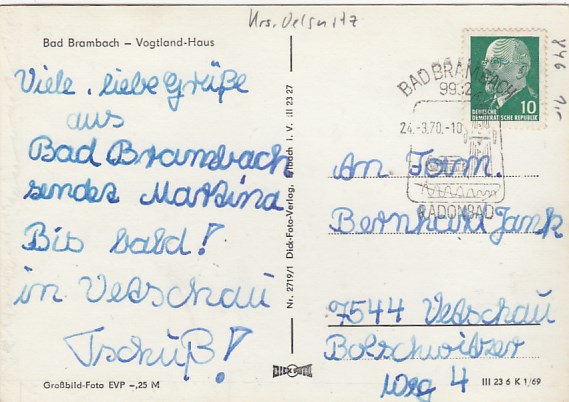 Krs. Oelsnitz
Bad Brambach – Vogtland-Haus
Viele, liebe Grüße
aus
Bad Brambach
sendet Martina
Bis bald!
in Vetschau
Tschüß!
Großbild-Foto EVP –,25 M
Nr. 2719/1 Dick-Foto-Verlag, Erlbach i. V. III 23 27
DICK FOTO
BAD BRAMBACH
9932
24.-3.70.-10
RADONBAD
10
DEUTSCHE
DEMOKRATISCHE REPUBLIK
846
An Fam.
Bernhard Jank
7544 Vetschau
Bolschwitzer
Weg 4
III 23 6 K 1/69